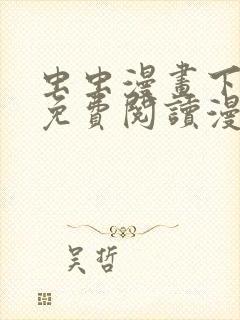 虫虫漫畫下
免費閱讀漫
吴哲